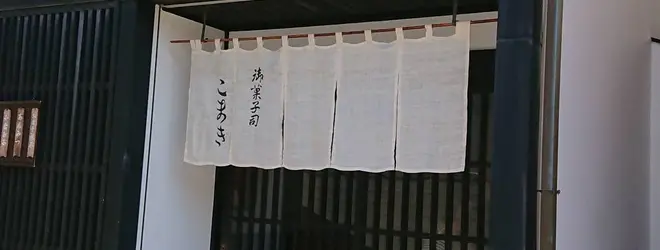 御菓子司
こまき